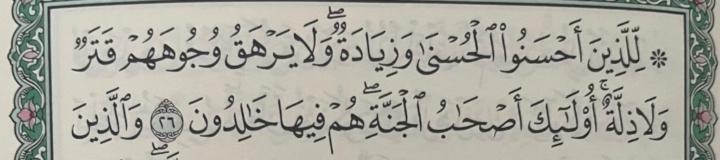 ۞ لِّلَّذِينَ أَحۡسَنُواْ ٱلۡحُسۡنَىٰ وَزِيَادَةٞۖ وَلَا يَرۡهَقُ وُجُوهَهُمۡ قَتَرٞ
وَلَا ذِلَّةٌۚ أُوْلَٰٓئِكَ أَصۡحَٰبُ ٱلۡجَنَّةِۖ هُمۡ فِيهَا خَٰلِدُونَ ٢٦ وَٱلَّذِينَ